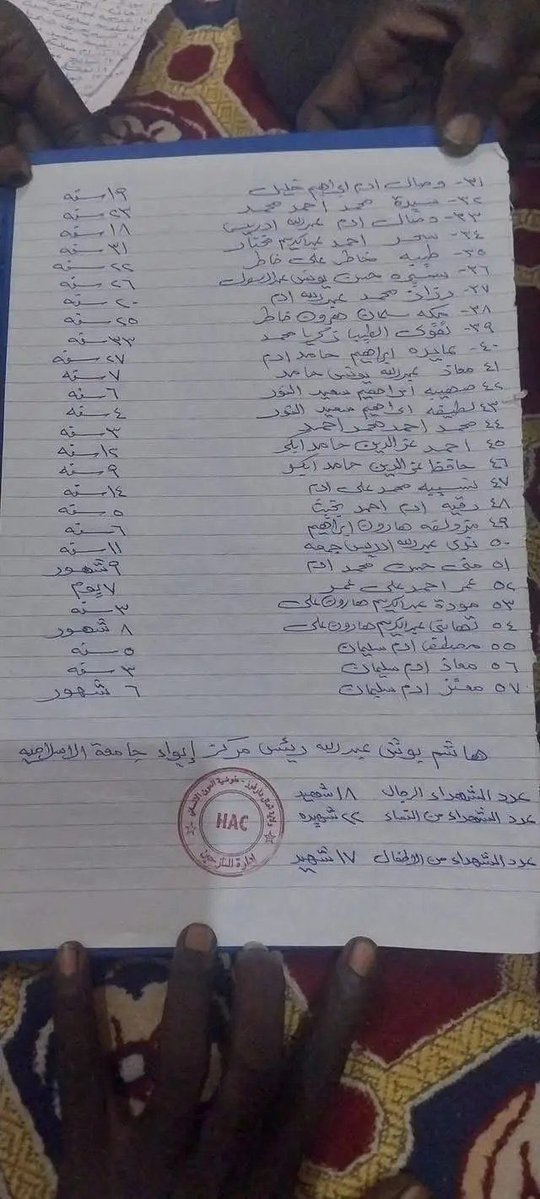 ٣١- وصال ادم ابراهيم خليل ١٩ سنه
٣٢- ميسرة محمد احمد محمد ٢٣ سنه
٣٣- وصال ادم عبدالله ادريس ١٨ سنه
٣٤- سحر احمد عبدالكريم مختار ٣١ سنه
٣٥- طيبه خاطر على خاطر ٢٢ سنه
٣٦- سميره حسن يونس عبدالرسول ٢٦ سنه
٣٧- رزان محمد عبدالله ادم ٢٠ سنه
٣٨- مكه سليمان هرون خاطر ٢٥ سنه
٣٩- تقوى الطيب زكريا محمد ٣٣ سنه
٤٠- عايده ابراهيم حامد ادم ٢٧ سنه
٤١ معاذ عبدالله يونس حامد ٧ سنه
٤٢ صهيبه ابراهيم سعيد النور ٦ سنه
٤٣ لطيفه ابراهيم سعيد النور ٤ سنه
٤٤ محمد احمد محمد احمد ٣ سنه
٤٥ احمد عزالدين حامد ١٢ سنه
٤٦ حافظ عزالدين حامد ٩ سنه
٤٧ محمد على ادم ١٤ سنه
٤٨ رقيه ادم احمد بخيت ٥ سنه
٤٩ مزدلفه هارون ابراهيم ٦ سنه
٥٠ عبدالله ادريس جمعه ١١ سنه
٥١ منى حسن محمد ادم ٩ شهور
٥٢ عمر احمد على عمر ٧ يوم
٥٣ مودة عبدالكريم هارون على ٣ سنه
٥٤ تهانى عبدالكريم هارون على ٨ شهور
٥٥ مصطفى ادم سليمان ٥ سنه
٥٦ معاذ ادم سليمان ٣ سنه
٥٧ معتز ادم سليمان ٦ شهور
هاشم يونس عبدالله رئيس مركز إيواء جامعة الاسلاميه
عدد الشهداء الرجال ١٨ شهيد
عدد الشهداء من النساء ٢٢ شهيده
عدد الشهداء من الاطفال ١٧ شهيد
ولاية شمال دارفور - مفوضية العون الانساني
HAC
إدارة النازحين